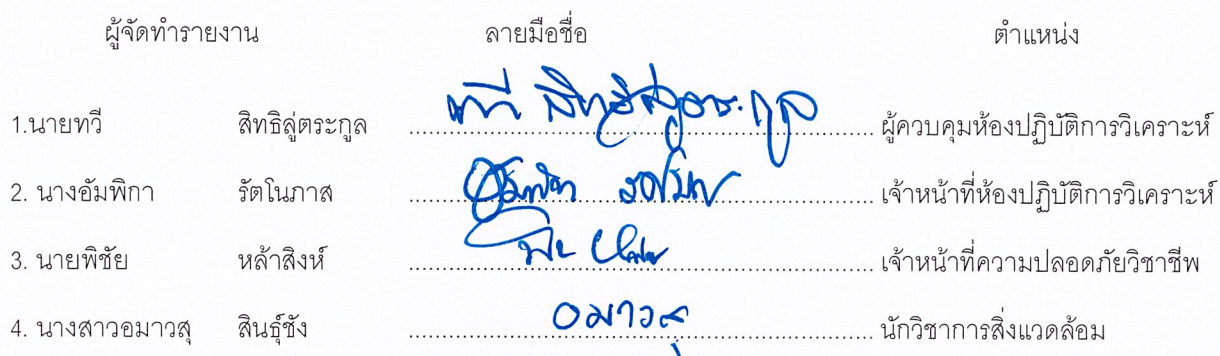 ผู้จัดทำรายงาน ลายมือชื่อ ตำแหน่ง
1.นายทวี สิทธิสู่ตระกูล ทวี สิทธิสู่ตระกูล ผู้ควบคุมห้องปฏิบัติการวิเคราะห์
2. นางอัมพิกา รัตโนภาส เจ้าหน้าที่ห้องปฏิบัติการวิเคราะห์
3. นายพิชัย หล้าสิงห์ เจ้าหน้าที่ความปลอดภัยวิชาชีพ
4. นางสาวอมาวสุ สินธุ์ชัง อมาวสุ นักวิชาการสิ่งแวดล้อม